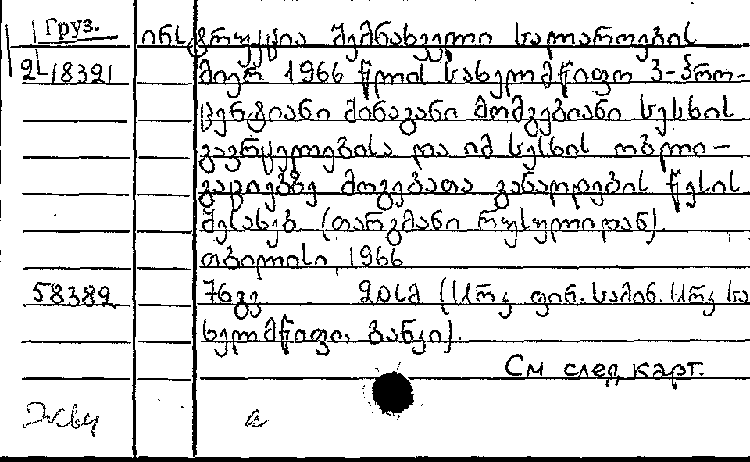 Груз.
ინსტრუქცია შემნახველი სალაროების
2-18321 მიერ 1966 წლის სახელმწიფო 3-პრო-
ცენტიანი შინაგანი მომგებიანი სესხის
გავრცელებისა და იმ სესხის ობლი-
გაციებზე მოგებათა განაღდების წესის
შესახებ. (თარგმანი რუსულიდან).
თბილისი, 1966
58382 76გვ. 20სმ (სსრკ ფინ. სამინ. სსრკ სა
ხელმწიფო ბანკი).
См след карт.